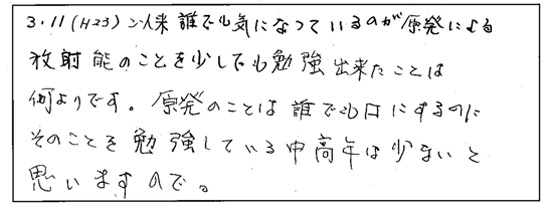 3.11(H23)以来誰でも気になっているのが原発による
放射能のことを少しでも勉強出来たことは
何よりです。原発のことは誰でも口にするのに
そのことを勉強している中高年は少ないと
思いますので。